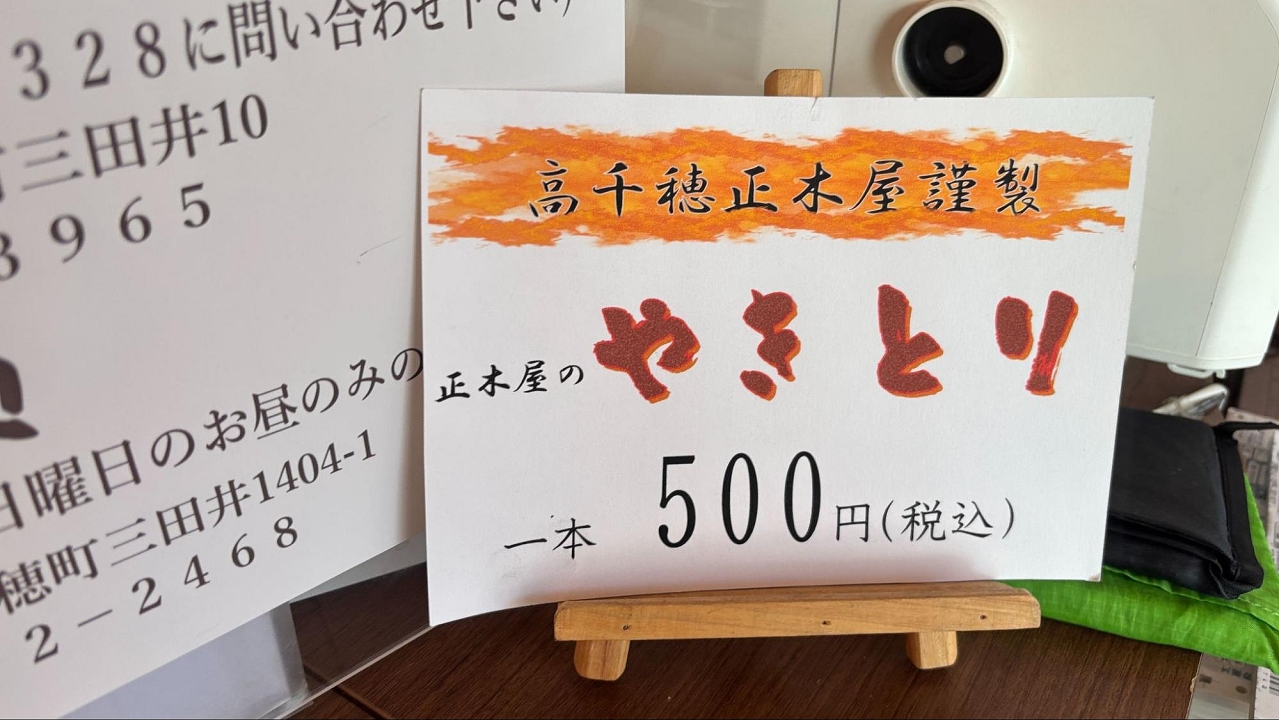 328に問い合わせ下さい
三田井10
3965
日曜日のお昼のみの
穂町三田井1404-1
2-2468
高千穂正木屋謹製
正木屋の やきとり
一本 500円(税込)